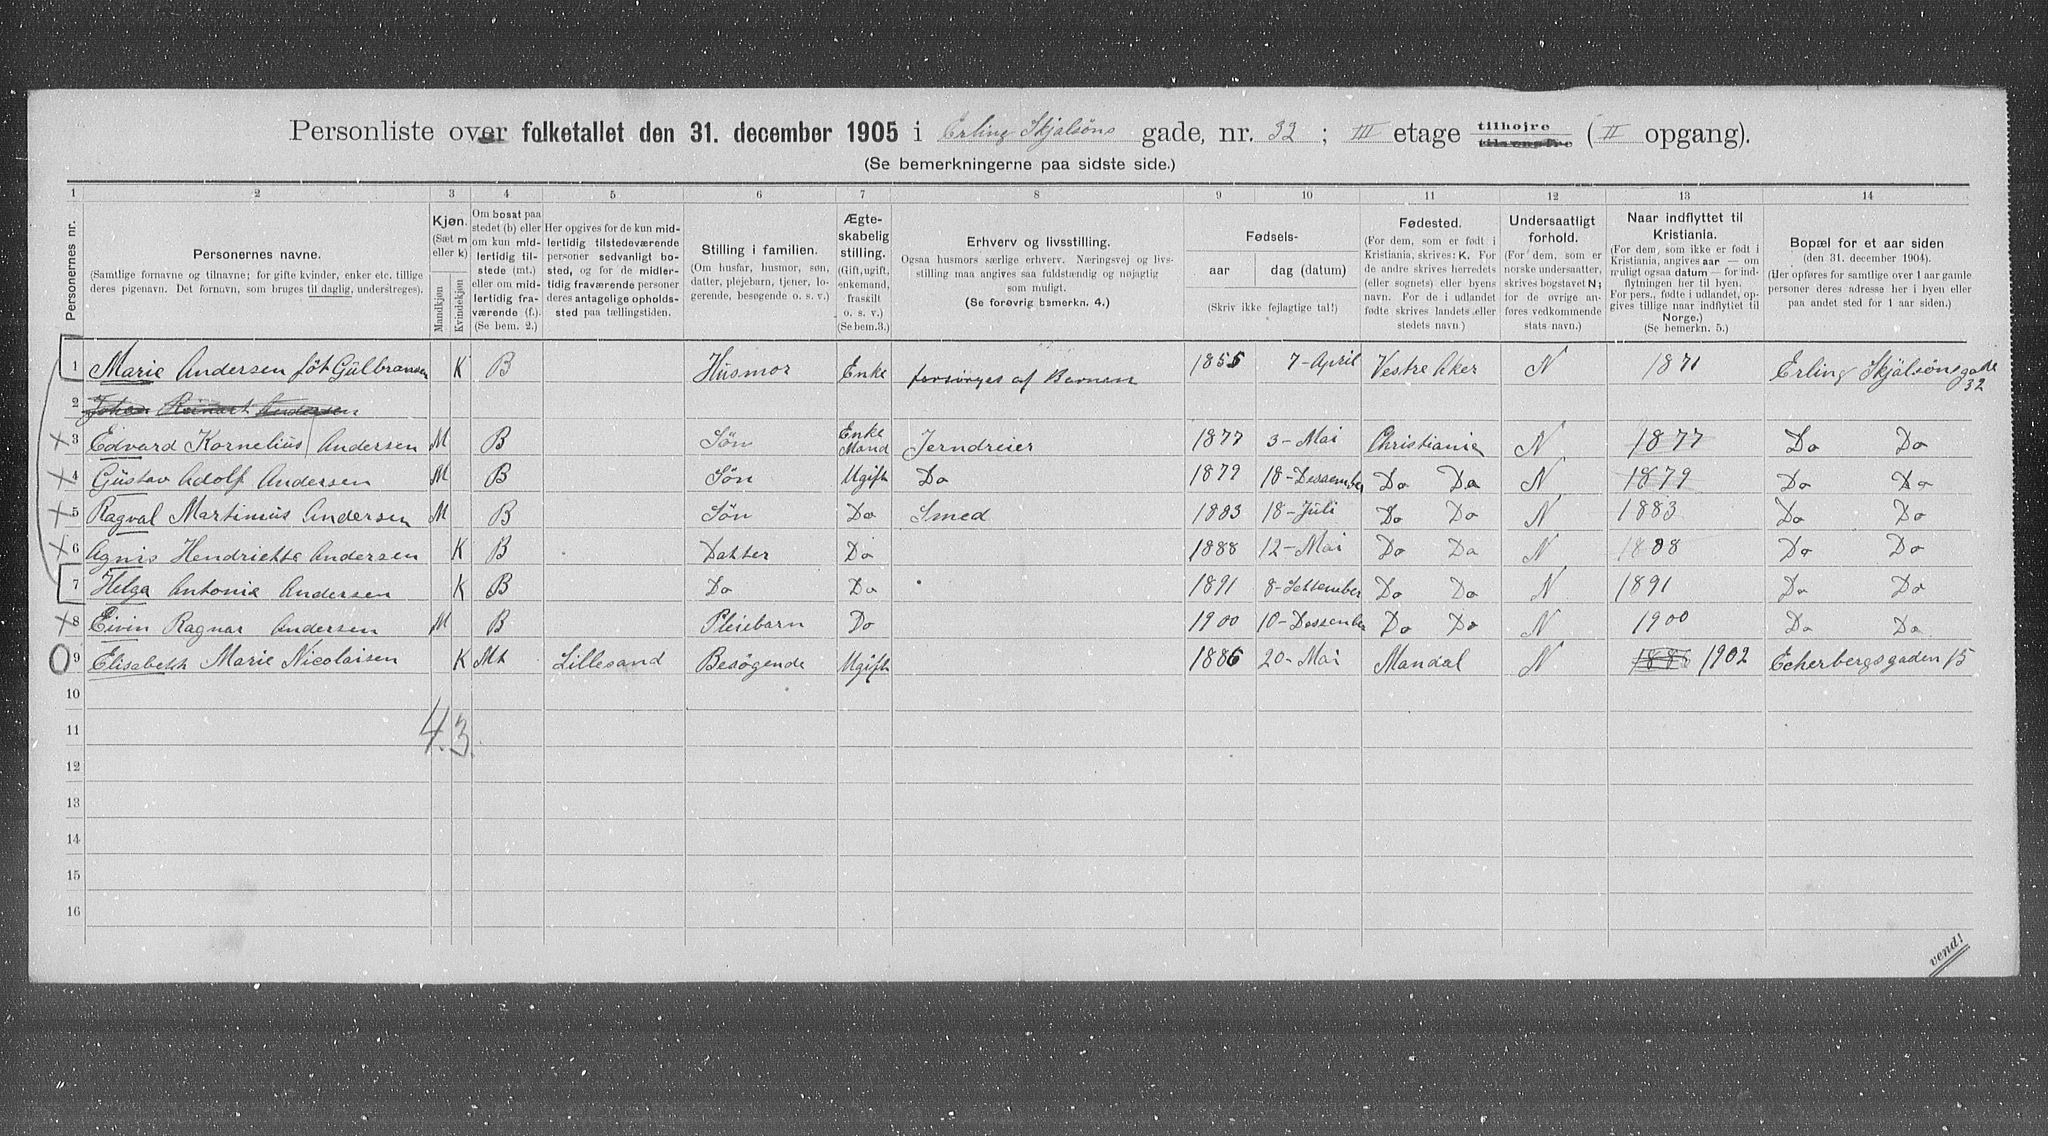 Personliste over folketallet den 31. december 1905 i Erling Skjalsöns gade, nr. 32 ; III etage tilhøjre tilvenstre ( II opgang).
(Se bemerkningerne paa sidste side.)
1 2 3 4 5 6 7 8 9 10 11 12 13 14
Personernes nr.
Personernes navne.
(Samtlige fornavne og tilnavne; for gifte kvinder, enker etc. tillige
deres pigenavn. Det fornavn, som bruges til daglig, understreges).
Kjøn.
(Sæt m
eller k)
Mandkjøn
Kvindekjøn
Om bosat paa
stedet (b) eller
om kun mid-
lertidig til-
stede (mt.)
eller om mid-
lertidig fra-
værende (f.).
(Se bem. 2.)
Her opgives for de kun mid-
lertidig tilstedeværende
personer sedvanligt bo-
sted, og for de midler-
tidig fraværende personer
deres antagelige opholds-
sted paa tællingstiden.
Stilling i familien.
(Om husfar, husmor, søn,
datter, plejebarn, tjener, lo-
gerende, besøgende o. s. v.)
Ægte-
skabelig
stilling.
(Gift, ugift,
enkemand,
fraskilt
o. s. v.)
(Se bem.3.)
Erhverv og livsstilling.
Ogsaa husmors særlige erhverv. Næringsvej og livs-
stilling maa angives saa fuldstændig og nøjagtig
som muligt.
(Se forøvrig bemerkn. 4.)
Fødsels-
aar
dag (datum)
(Skriv ikke fejlagtige tal!)
Fødested.
(For dem, som er født i
Kristiania, skrives: K. For
de andre skrives herredets
(eller sognets) eller byens
navn. For de i udlandet
fødte skrives landets eller
stedets navn.)
Undersaatligt
forhold.
(For dem, som er
norske undersaatter,
skrives bogstavet N;
for de øvrige an-
føres vedkommende
stats navn.)
Naar indflyttet til
Kristiania.
(For dem, som ikke er født i
Kristiania, angives aar — om
muligt ogsaa datum — for ind-
flytningen her til byen.
For pers., fødte i udlandet, op-
gives tillige naar indflyttet til
Norge.)
(Se bemerkn. 5.)
Bopæl for et aar siden
(den 31. december 1904).
(Her opføres for samtlige over 1 aar gamle
personer deres adresse her i byen eller
paa andet sted for 1 aar siden.)
1 Marie Andersen föt Gulbransen K B Husmor Enke forsörges af Barnene 1855 7-April Vestre Aker N 1871 Erling Skjalsönsgade 32
2 Johan Reinart Andersen
X 3 Edvard Kornelius Andersen M B Sön Enke Mand Jerndreier 1877 3-Mai Christiania N 1877 Do Do
X 4 Gustav Adolf Andersen M B Sön Ugift Do 1879 18-Dessember Do Do N 1879 Do Do
X 5 Ragval Martinius Andersen M B Sön Do Smed 1883 18-Juli Do Do N 1883 Do Do
X 6 Agnis Hendriette Andersen K B Datter Do 1888 12-Mai Do Do N 1888 Do Do
7 Helga Antonie Andersen K B Do Do 1891 8-Settember Do Do N 1891 Do Do
X 8 Eivin Ragnar Andersen M B Pleiebarn Do 1900 10-Dessember Do Do N 1900 Do Do
O 9 Elisabeth Marie Nicolaisen K Mt Lillesand Besøgende Ugift 1886 20-Mai Mandal N 1886 1902 Eckerbergsgaden 15
10
4.3.
11
12
13
14
15
16
vend!